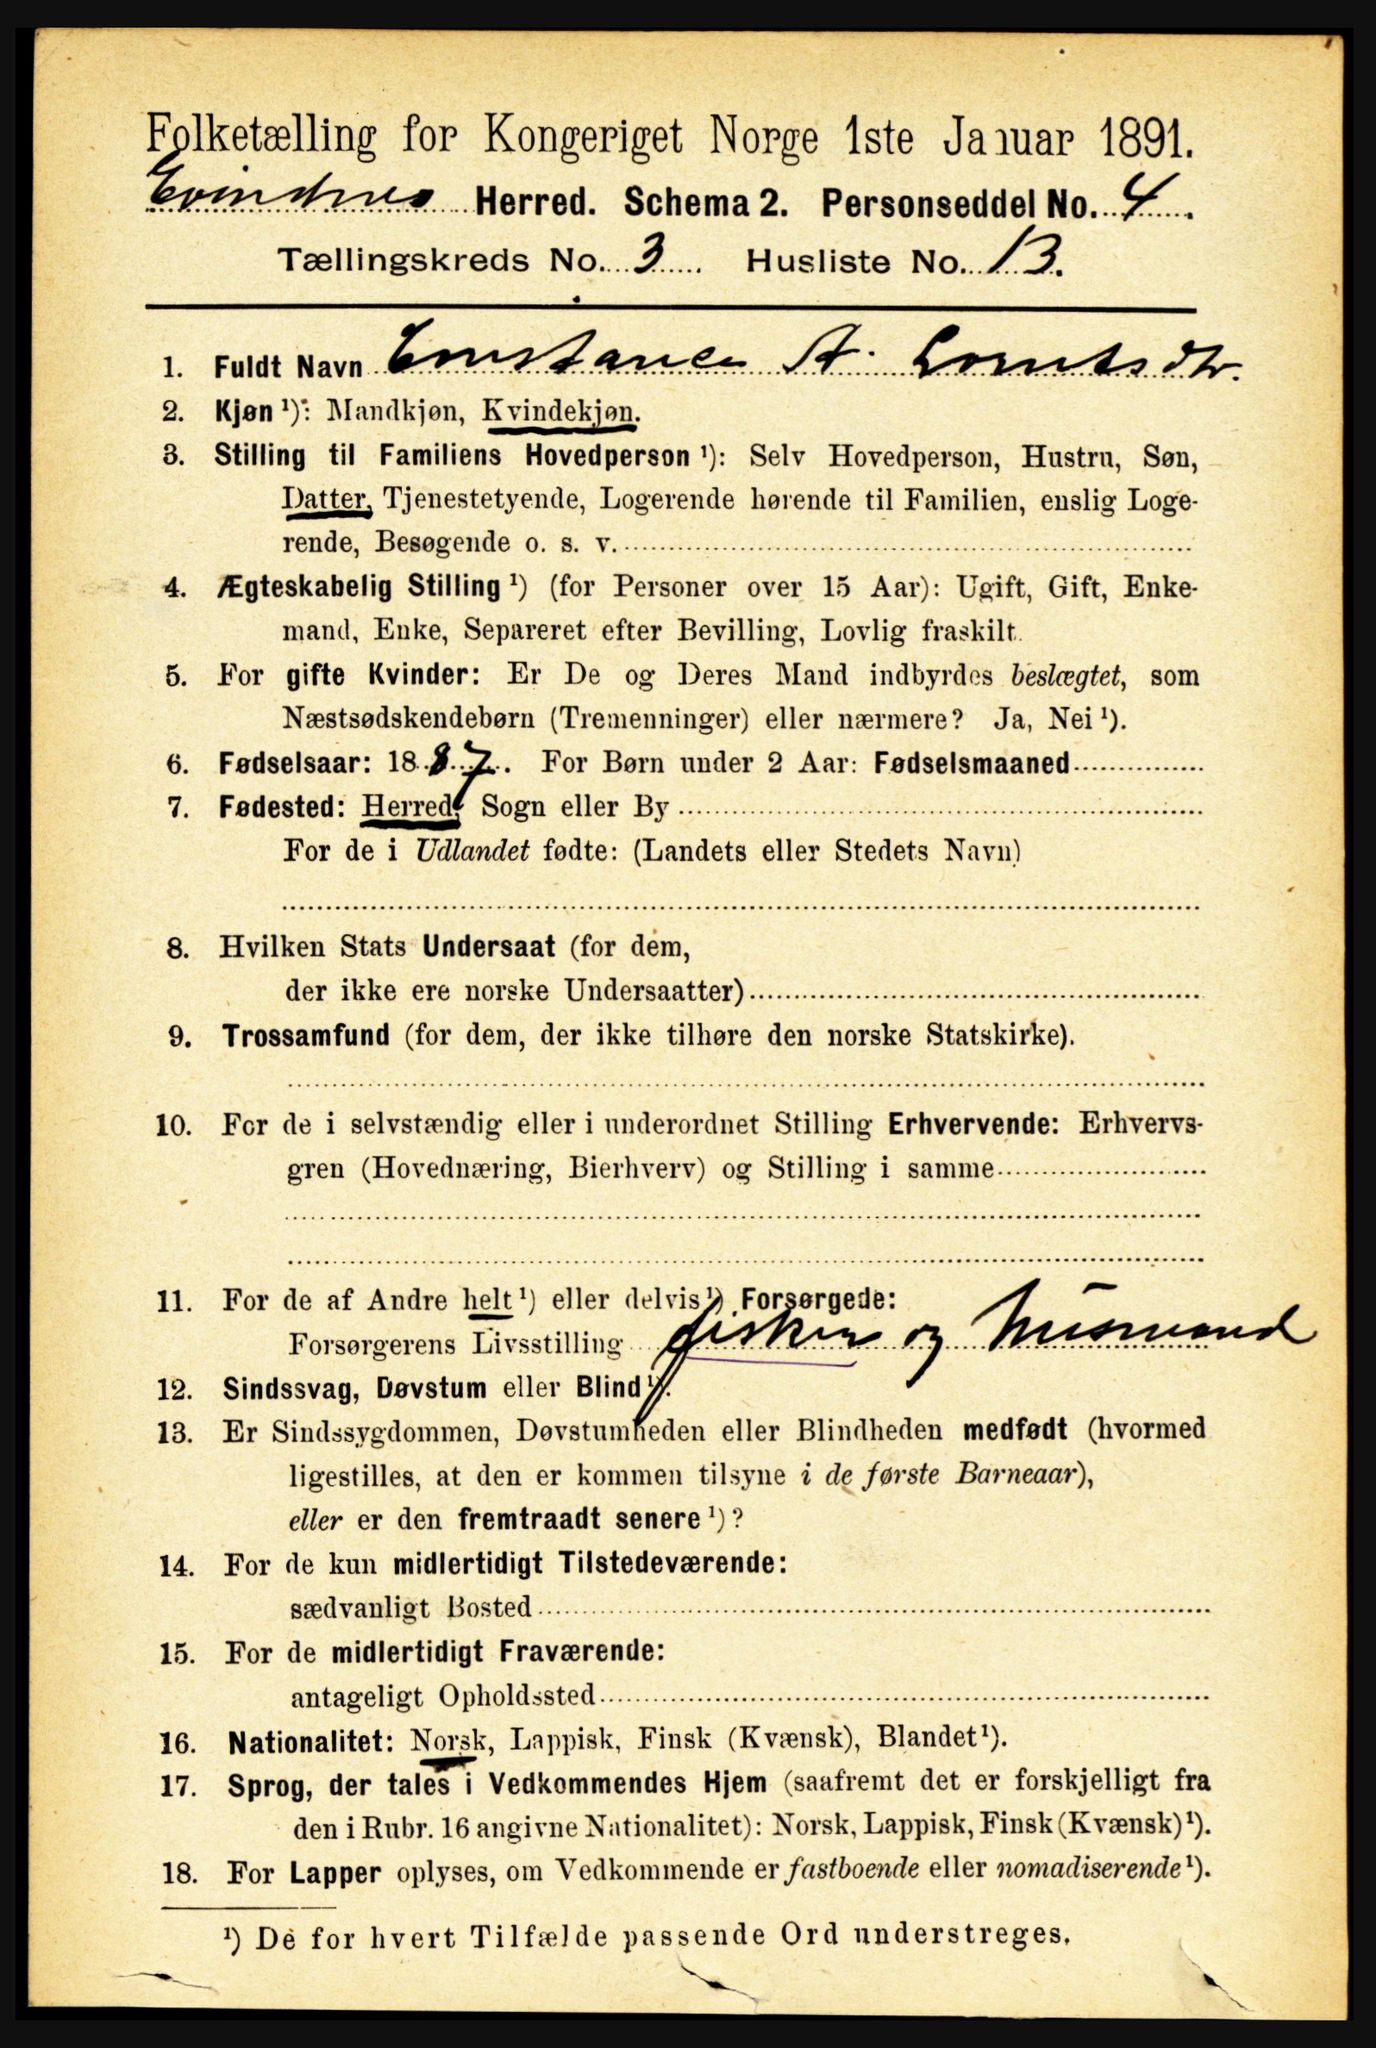 Folketælling for Kongeriget Norge 1ste Januar 1891.
Evindnes Herred. Schema 2. Personseddel No. 4.
Tællingskreds No. 3. Husliste No. 13.
1. Fuldt Navn Constance A. Lorntsdtr.
2. Kjøn ¹): Mandkjøn, Kvindekjøn.
3. Stilling til Familiens Hovedperson ¹): Selv Hovedperson, Hustru, Søn,
Datter, Tjenestetyende, Logerende hørende til Familien, enslig Loge-
rende, Besøgende o. s. v.
4. Ægteskabelig Stilling ¹) (for Personer over 15 Aar): Ugift, Gift, Enke-
mand, Enke, Separeret efter Bevilling, Lovlig fraskilt.
5. For gifte Kvinder: Er De og Deres Mand indbyrdes beslægtet, som
Næstsødskendebørn (Tremenninger) eller nærmere? Ja, Nei ¹).
6. Fødselsaar: 1887. For Børn under 2 Aar: Fødselsmaaned
7. Fødested: Herred, Sogn eller By
For de i Udlandet fødte: (Landets eller Stedets Navn)
8. Hvilken Stats Undersaat (for dem,
der ikke ere norske Undersaatter)
9. Trossamfund (for dem, der ikke tilhøre den norske Statskirke).
10. For de i selvstændig eller i underordnet Stilling Erhvervende: Erhvervs-
gren (Hovednæring, Bierhverv) og Stilling i samme
11. For de af Andre helt ¹) eller delvis ¹) Forsørgede:
Forsørgerens Livsstilling fisker og Husmand
12. Sindssvag, Døvstum eller Blind ¹).
13. Er Sindssygdommen, Døvstumheden eller Blindheden medfødt (hvormed
ligestilles, at den er kommen tilsyne i de første Barneaar),
eller er den fremtraadt senere ¹)?
14. For de kun midlertidigt Tilstedeværende:
sædvanligt Bosted
15. For de midlertidigt Fraværende:
antageligt Opholdssted
16. Nationalitet: Norsk, Lappisk, Finsk (Kvænsk), Blandet ¹).
17. Sprog, der tales i Vedkommendes Hjem (saafremt det er forskjelligt fra
den i Rubr. 16 angivne Nationalitet): Norsk, Lappisk, Finsk (Kvænsk) ¹).
18. For Lapper oplyses, om Vedkommende er fastboende eller nomadiserende ¹).
¹) De for hvert Tilfælde passende Ord understreges.